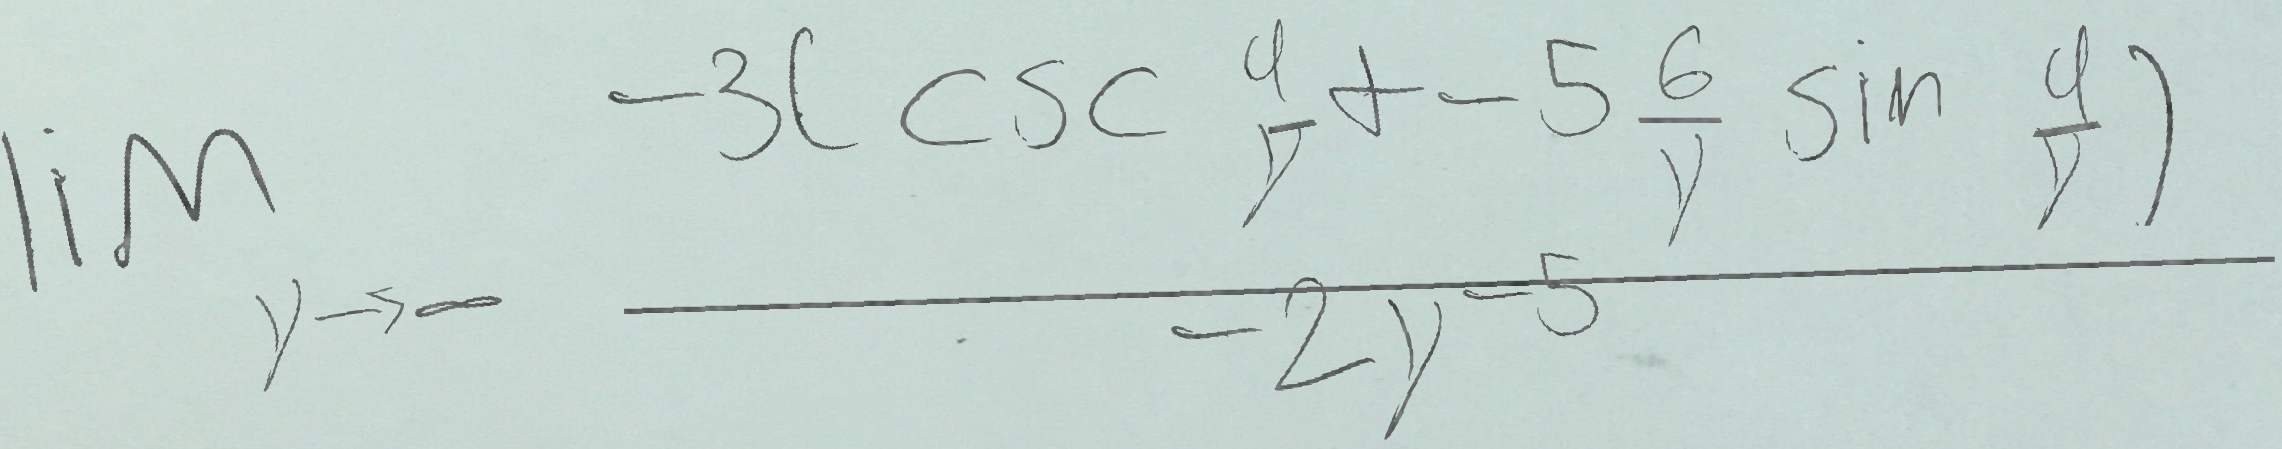 \lim_{y \to -} \frac{-3(\csc \frac{9}{y} + -5 \frac{6}{y} \sin \frac{9}{y})}{-2y^{-5}}